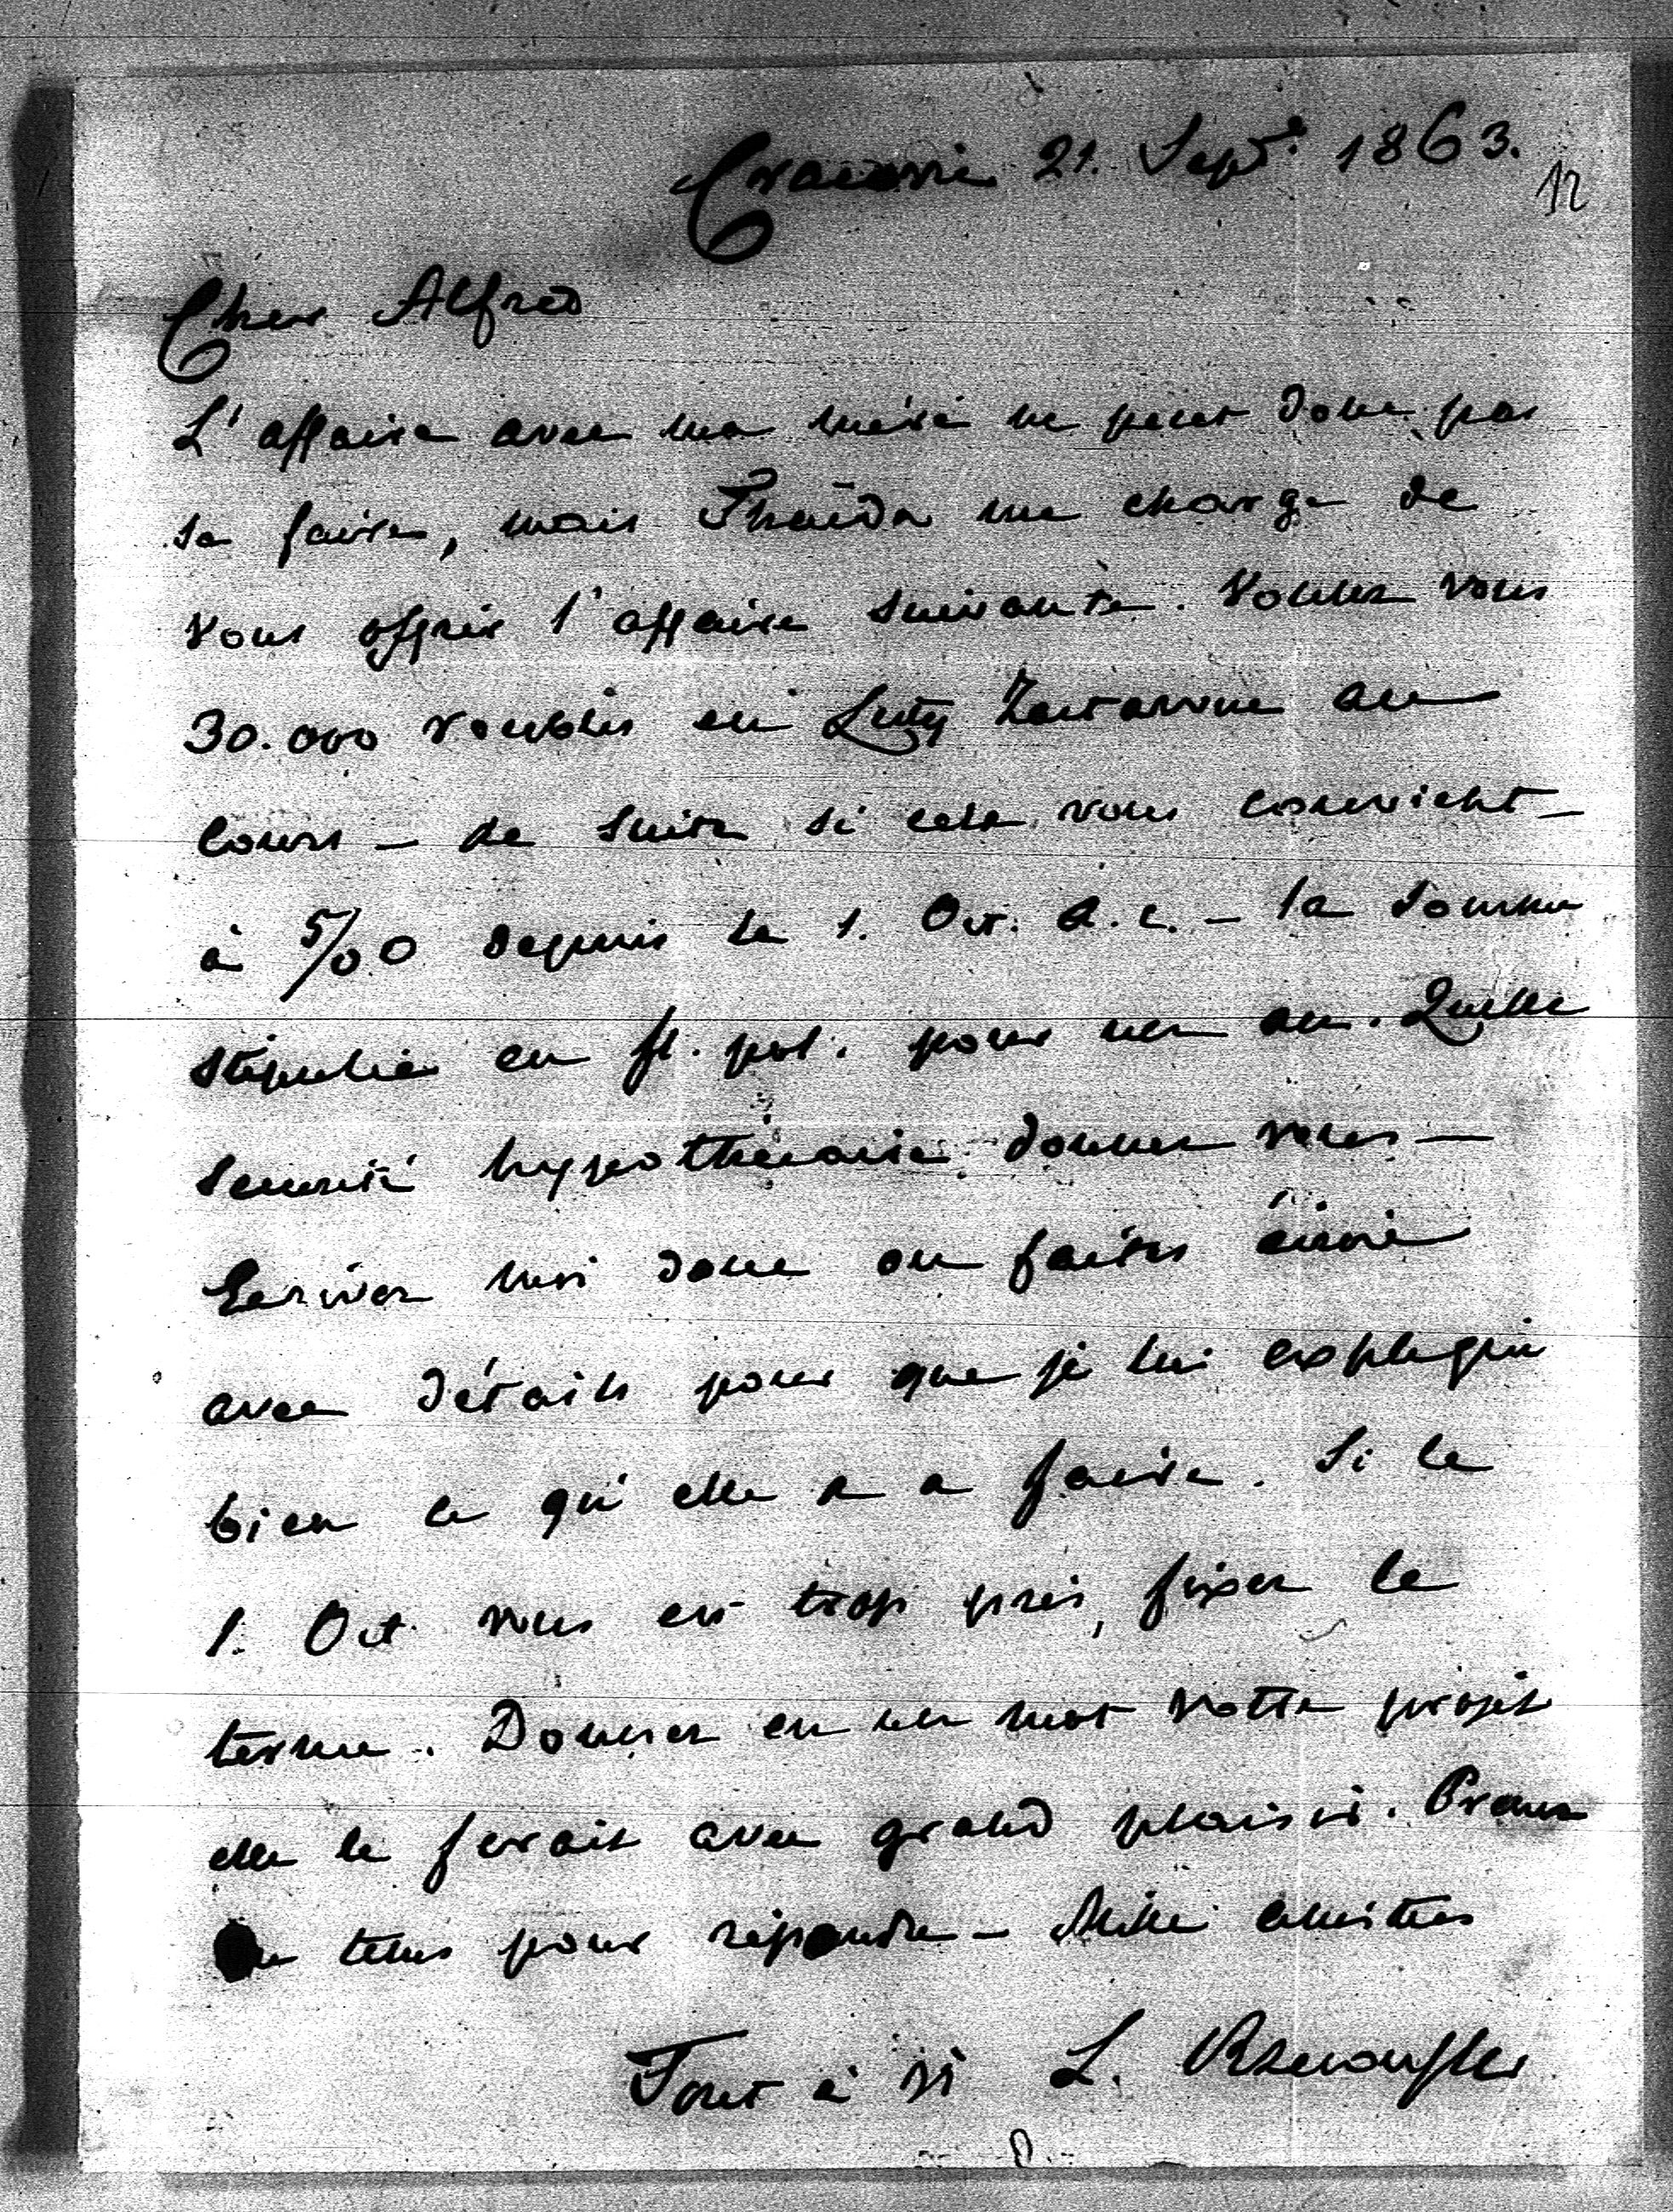 Cracovie 21. Sept. 1863.
12
Cher Alfred
L'affaire avec ma mère ne peut donc pas
se faire, mais Thaïda me charge de
vous offrir l'affaire suivante. Voulez vous
30.000 roubles en Listy Zastawne au
cours – de suite si cela vous convient –
à 5/00 depuis le 1. Oct. a. c. – la somme
stipulée en fl. pol. pour un an. Quelle
securité hypothécaire donnez vous –
Ecrivez moi donc ou faites écrire
avec détails pour que je lui explique
bien ce qu'elle a a faire. Si le
1. Oct. vous est trop près, fixez le
terme. Donnez en un mot votre projet
elle le ferait avec grand plaisir. Prenez
tems pour répondre – Mille amitiés
Tout à Vs L.